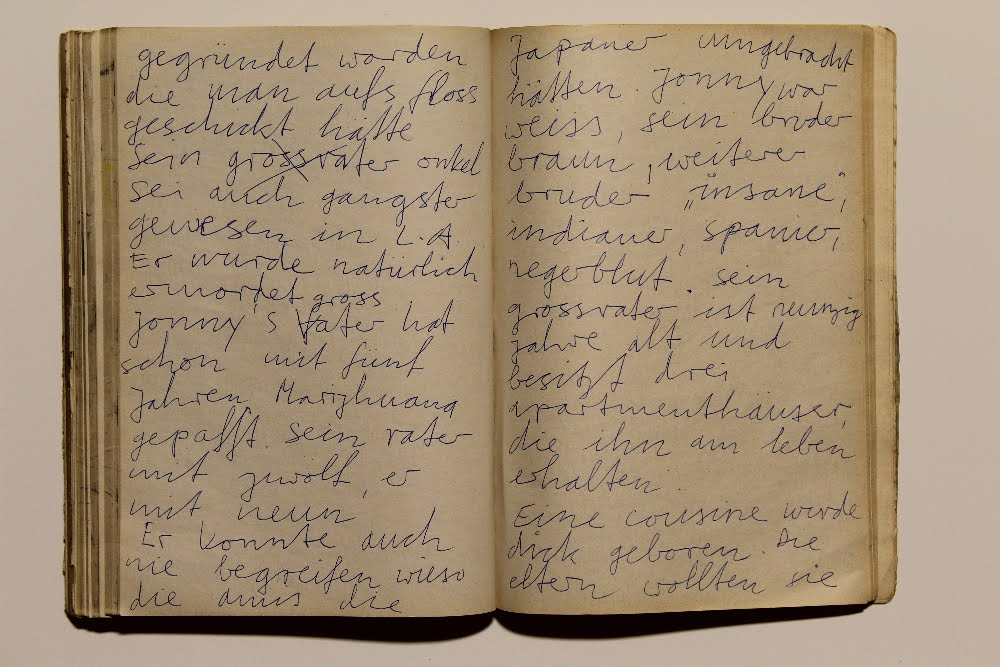 gegründet worden
die man aufs floss
geschickt hätte
Sein grossvater onkel
sei auch gangster
gewesen in L.A.
Er wurde natürlich
ermordet
gross
Jonny's fater hat
schon mit fünf
Jahren Marijhuana
gepafft. Sein vater
mit zwölf, er
mit neun
Er konnte auch
nie begreifen wieso
die amis die
Japaner umgebracht
hätten. Jonny war
weiss, sein bruder
braun, weiterer
bruder „insane",
indianer, spanier,
negerblut. sein
grossvater ist neunzig
jahre alt und
besitzt drei
apartmenthäuser,
die ihn am leben
erhalten.
Eine cousine wurde
dick geboren. Die
eltern wollten sie